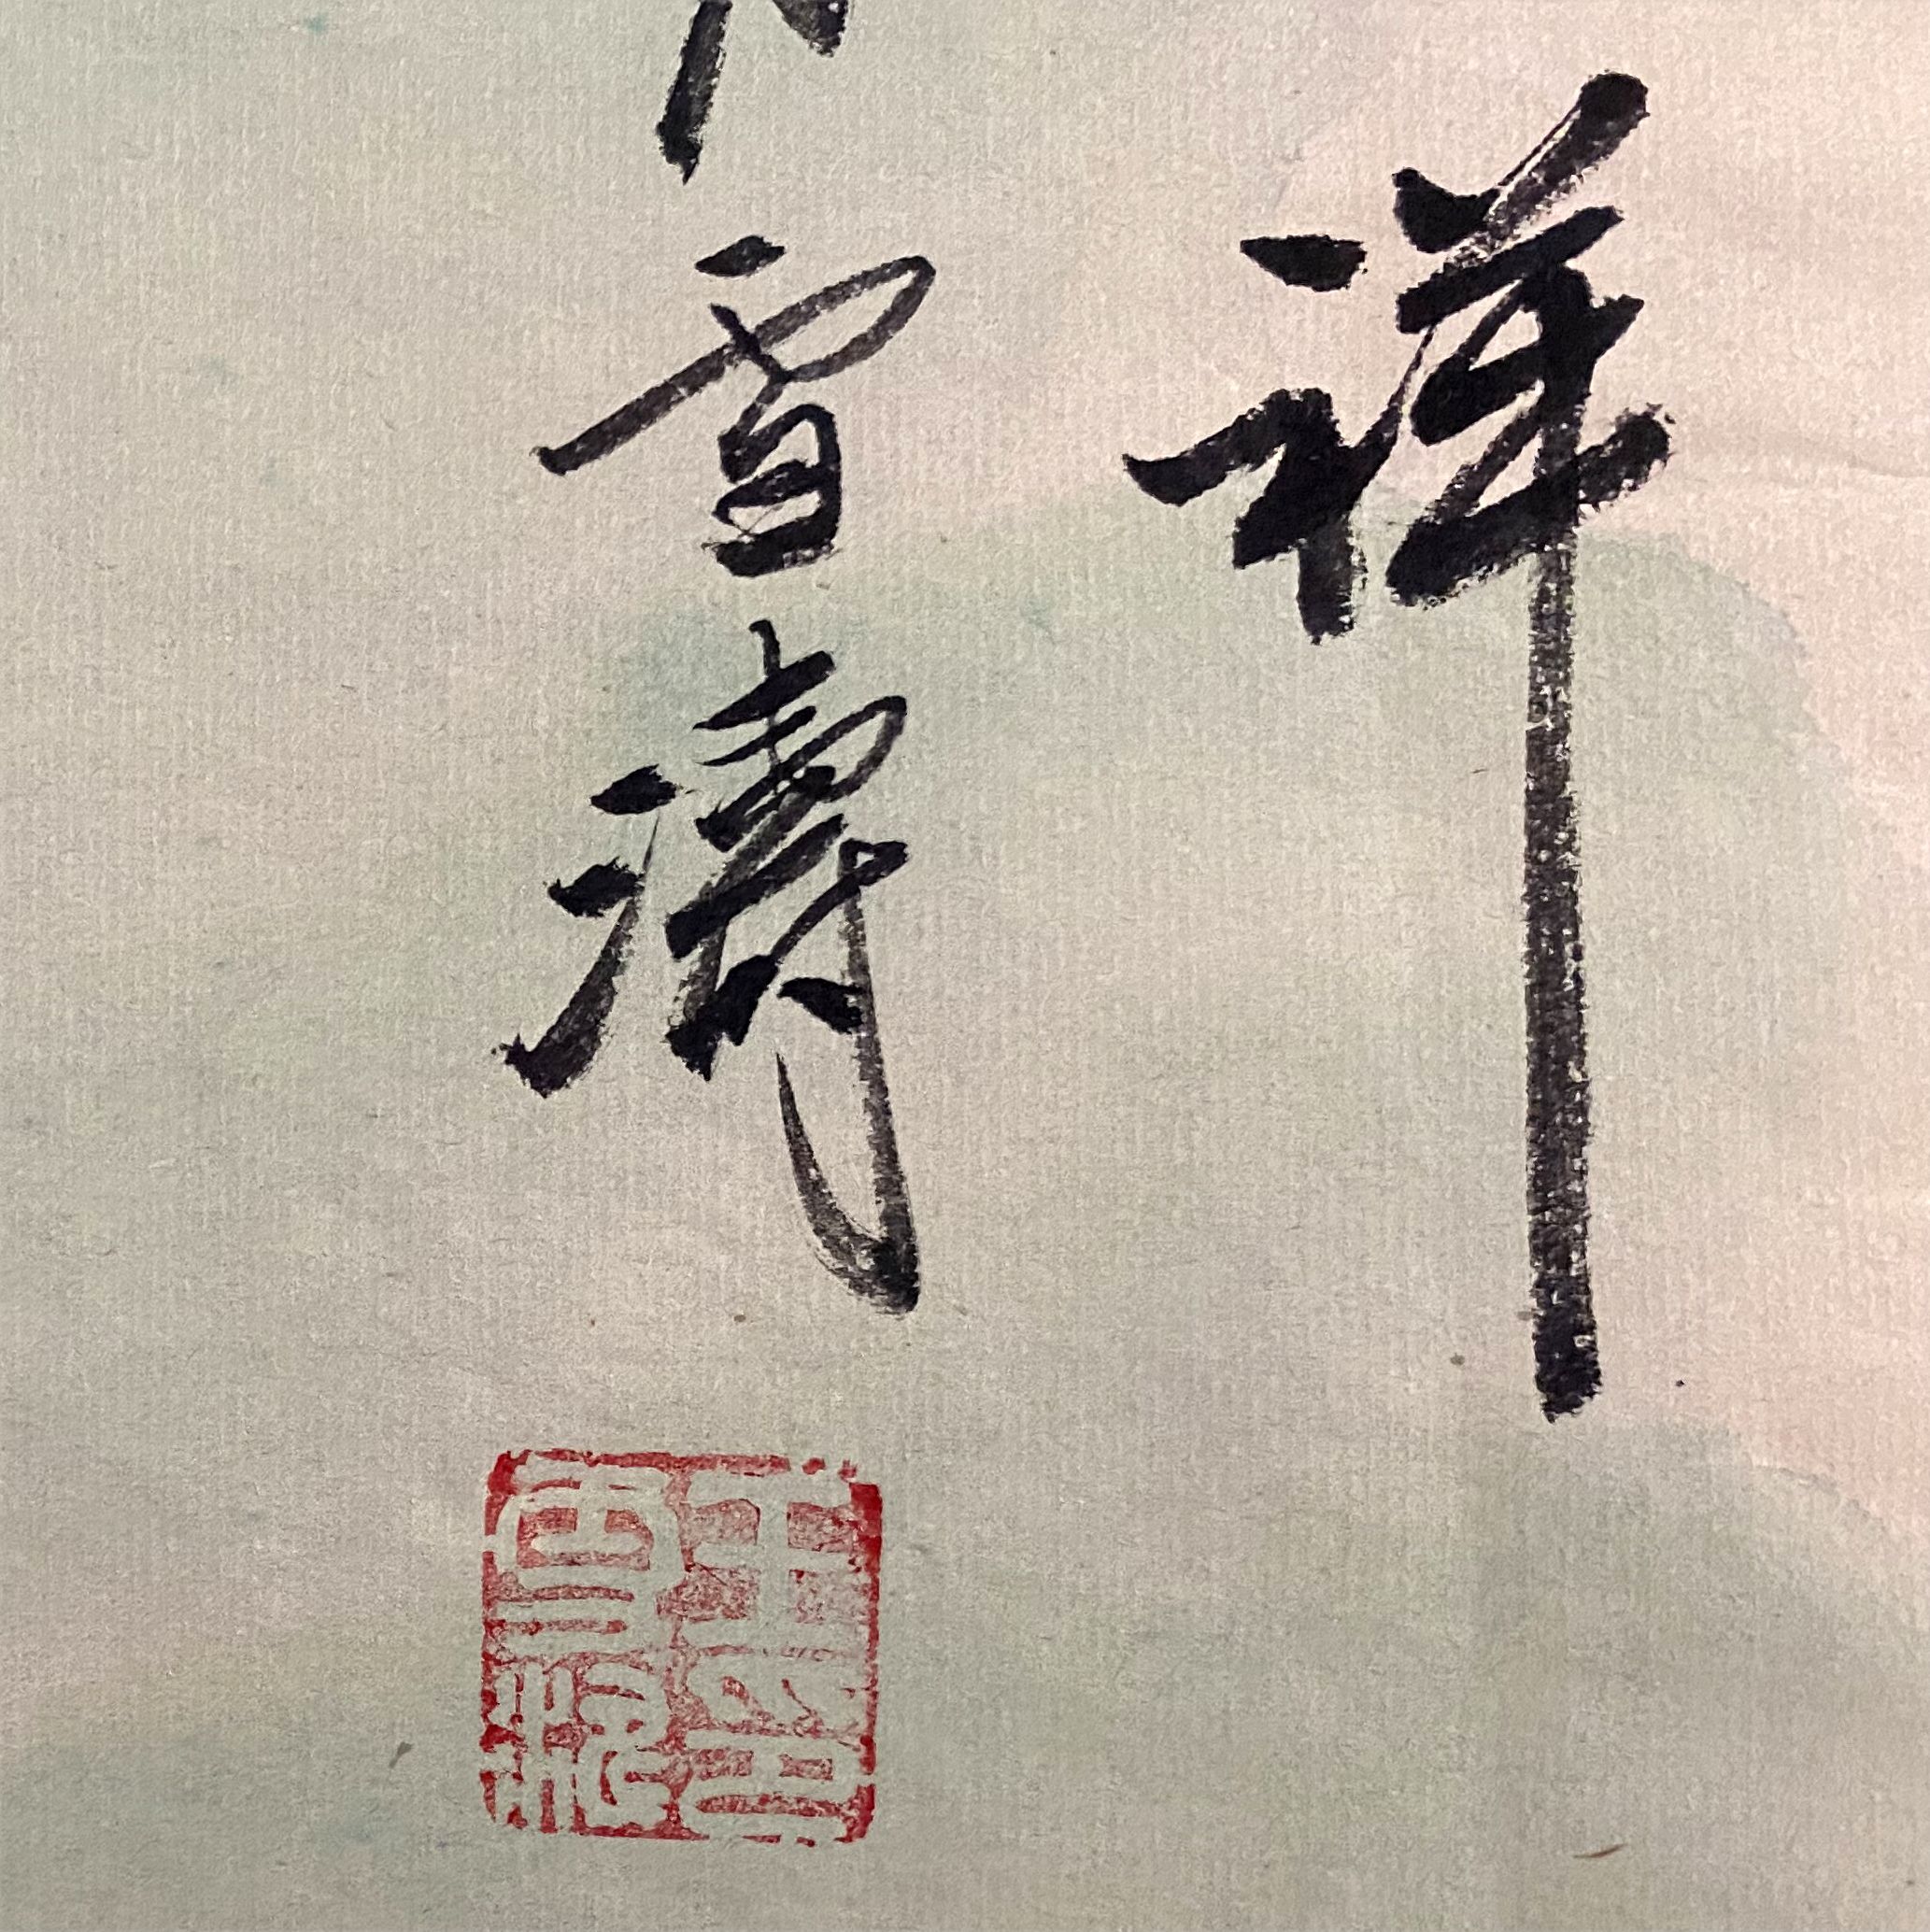 祥
雪濤
王雪濤印